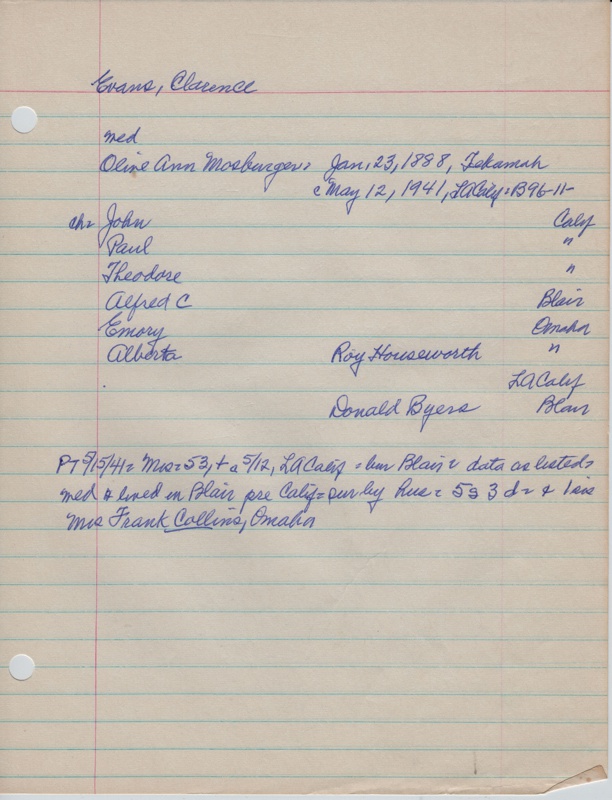 Evans, Clarence
med
Olive Ann Mosburger = Jan, 23, 1888, Tekamah
c May 12, 1941, LA Calif = B96-11-
ch = John Calif
Paul "
Theodore "
Alfred C Blair
Emory Omaha
Alberta Roy Houseworth "
LA Calif
Donald Byers Blair
PT 5/15/41 = Mrs = 53, + a 5/12, LA Calif = bur Blair = data as listed =
med & lived in Blair pre Calif = sur by hus = 5s 3d = & 1 sis
Mrs Frank Collins, Omaha